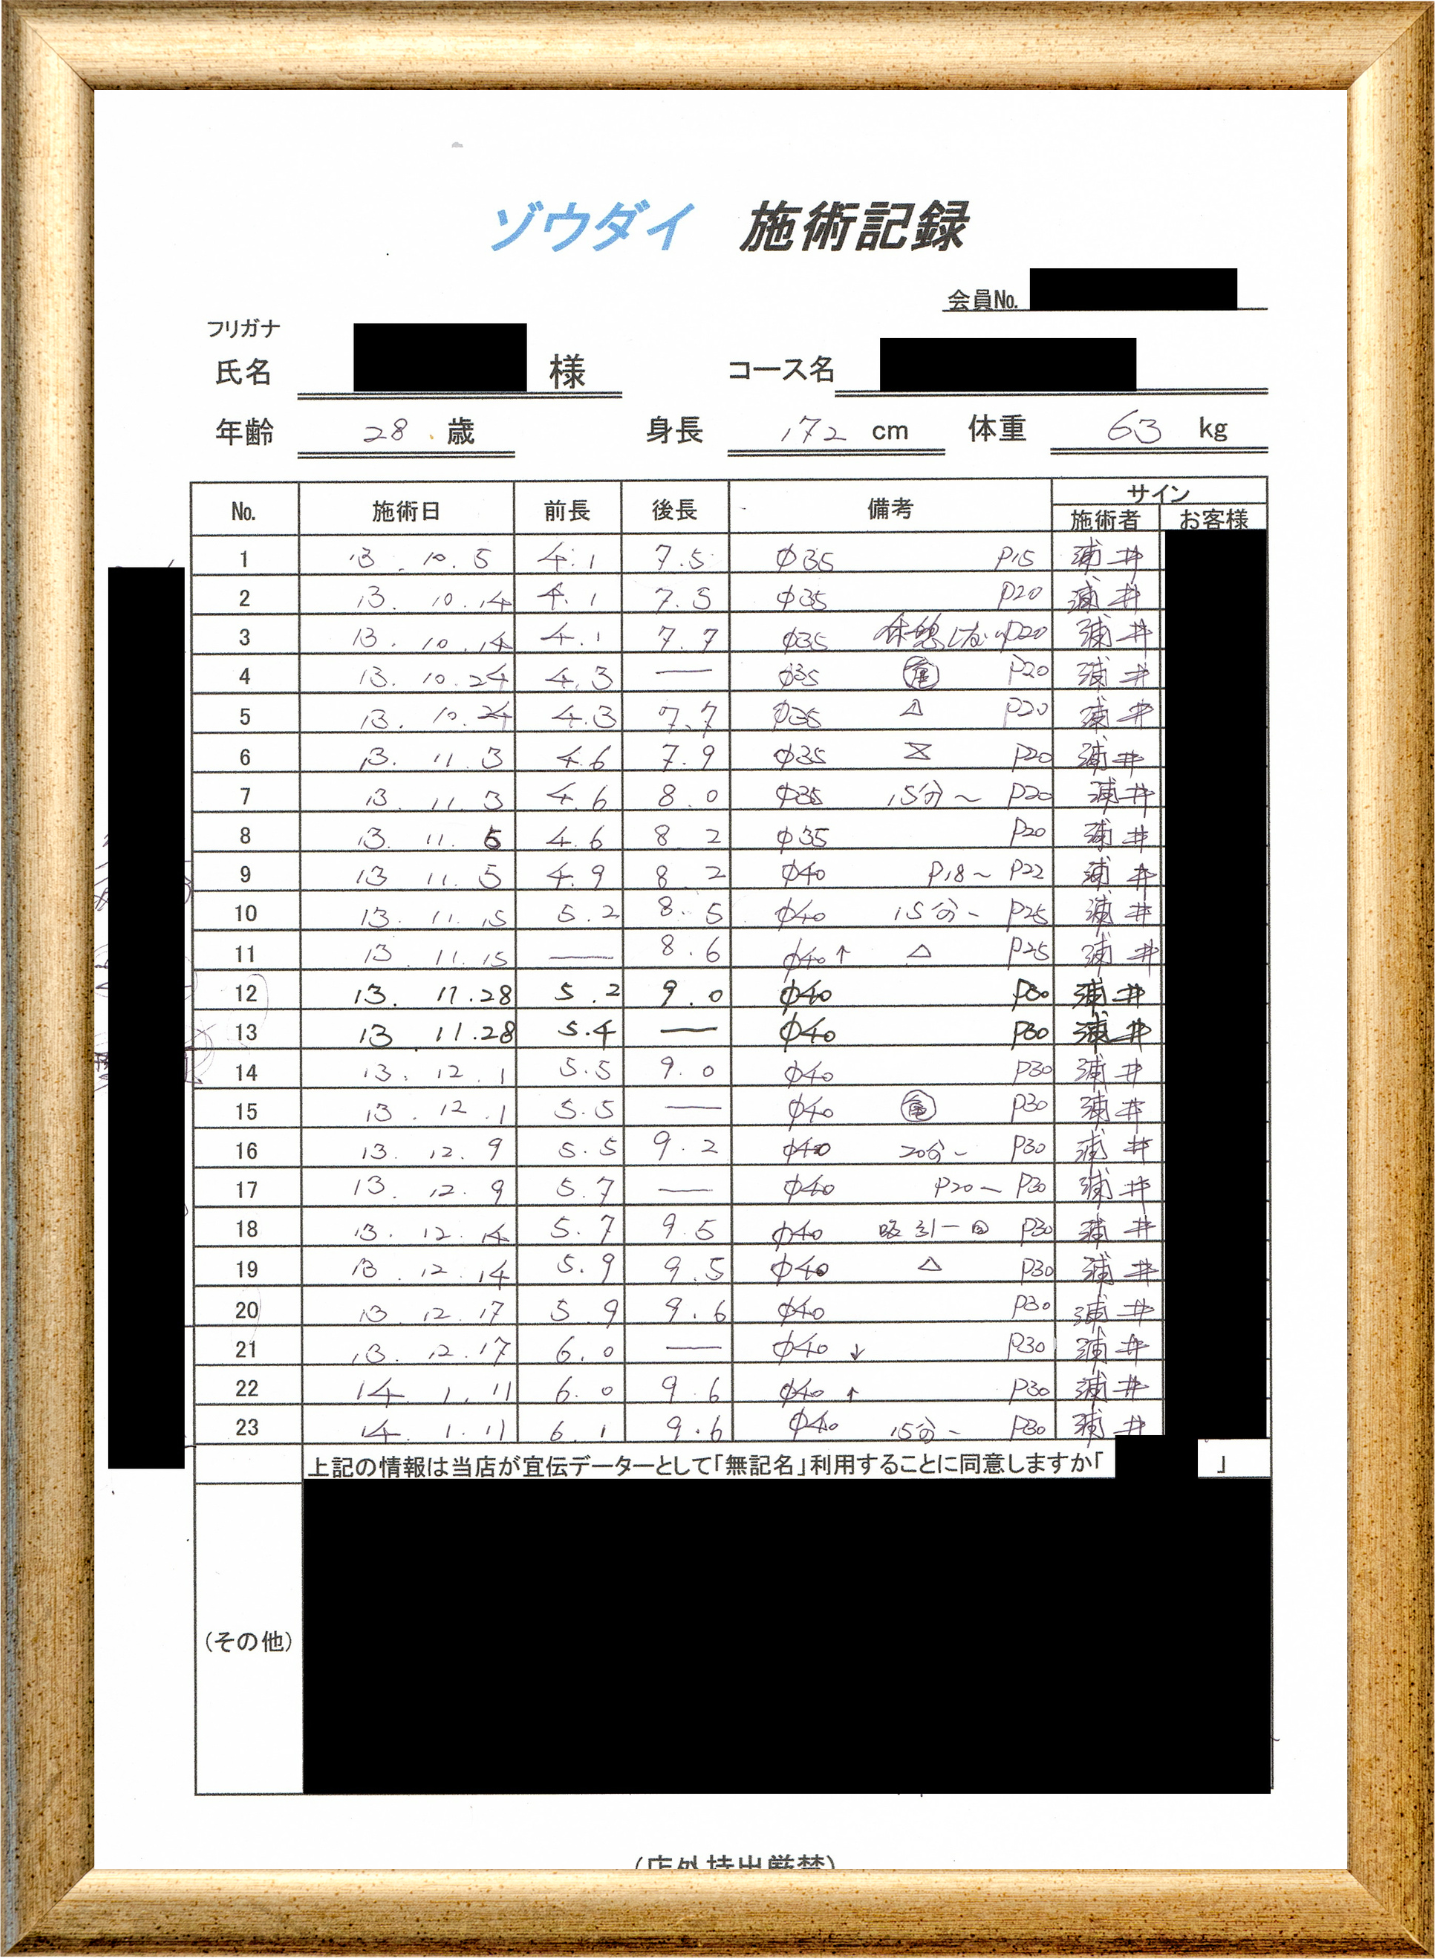 ゾウダイ 施術記録
会員No.
フリガナ
氏名 様 コース名
年齢 28 歳 身長 172 cm 体重 63 kg
No. 施術日 前長 後長 備考 サイン
施術者 お客様
1 13. 10. 5 4.1 7.5 φ35 P15 浦井
2 13. 10. 14 4.1 7.5 φ35 P20 浦井
3 13. 10. 14 4.1 7.7 φ35 休憩しない P20 浦井
4 13. 10. 24 4.3 — φ35 P20 浦井
5 13. 10. 24 4.3 7.7 φ35 △ P20 浦井
6 13. 11. 3 4.6 7.9 φ35 P20 浦井
7 13. 11. 3 4.6 8.0 φ35 15分〜 P20 浦井
8 13. 11. 5 4.6 8.2 φ35 P20 浦井
9 13 11. 5 4.9 8.2 φ40 P18〜 P22 浦井
10 13. 11. 15 5.2 8.5 φ40 15分〜 P25 浦井
11 13. 11. 15 — 8.6 φ40↑ △ P25 浦井
12 13. 11. 28 5.2 9.0 φ40 P30 浦井
13 13 11. 28 5.4 — φ40 P30 浦井
14 13. 12. 1 5.5 9.0 φ40 P30 浦井
15 13. 12. 1 5.5 — φ40 P30 浦井
16 13. 12. 9 5.5 9.2 φ40 20分〜 P30 浦井
17 13. 12. 9 5.7 — φ40 P20〜 P30 浦井
18 13. 12. 14 5.7 9.5 φ40 吸引一回 P30 浦井
19 13. 12. 14 5.9 9.5 φ40 △ P30 浦井
20 13. 12. 17 5.9 9.6 φ40 P30 浦井
21 13. 12. 17 6.0 — φ40 ↓ P30 浦井
22 14. 1. 11 6.0 9.6 φ40 ↑ P30 浦井
23 14. 1. 11 6.1 9.6 φ40 15分〜 P30 浦井
上記の情報は当店が宣伝データーとして「無記名」利用することに同意しますか「 」
(その他)
(店外持出厳禁)